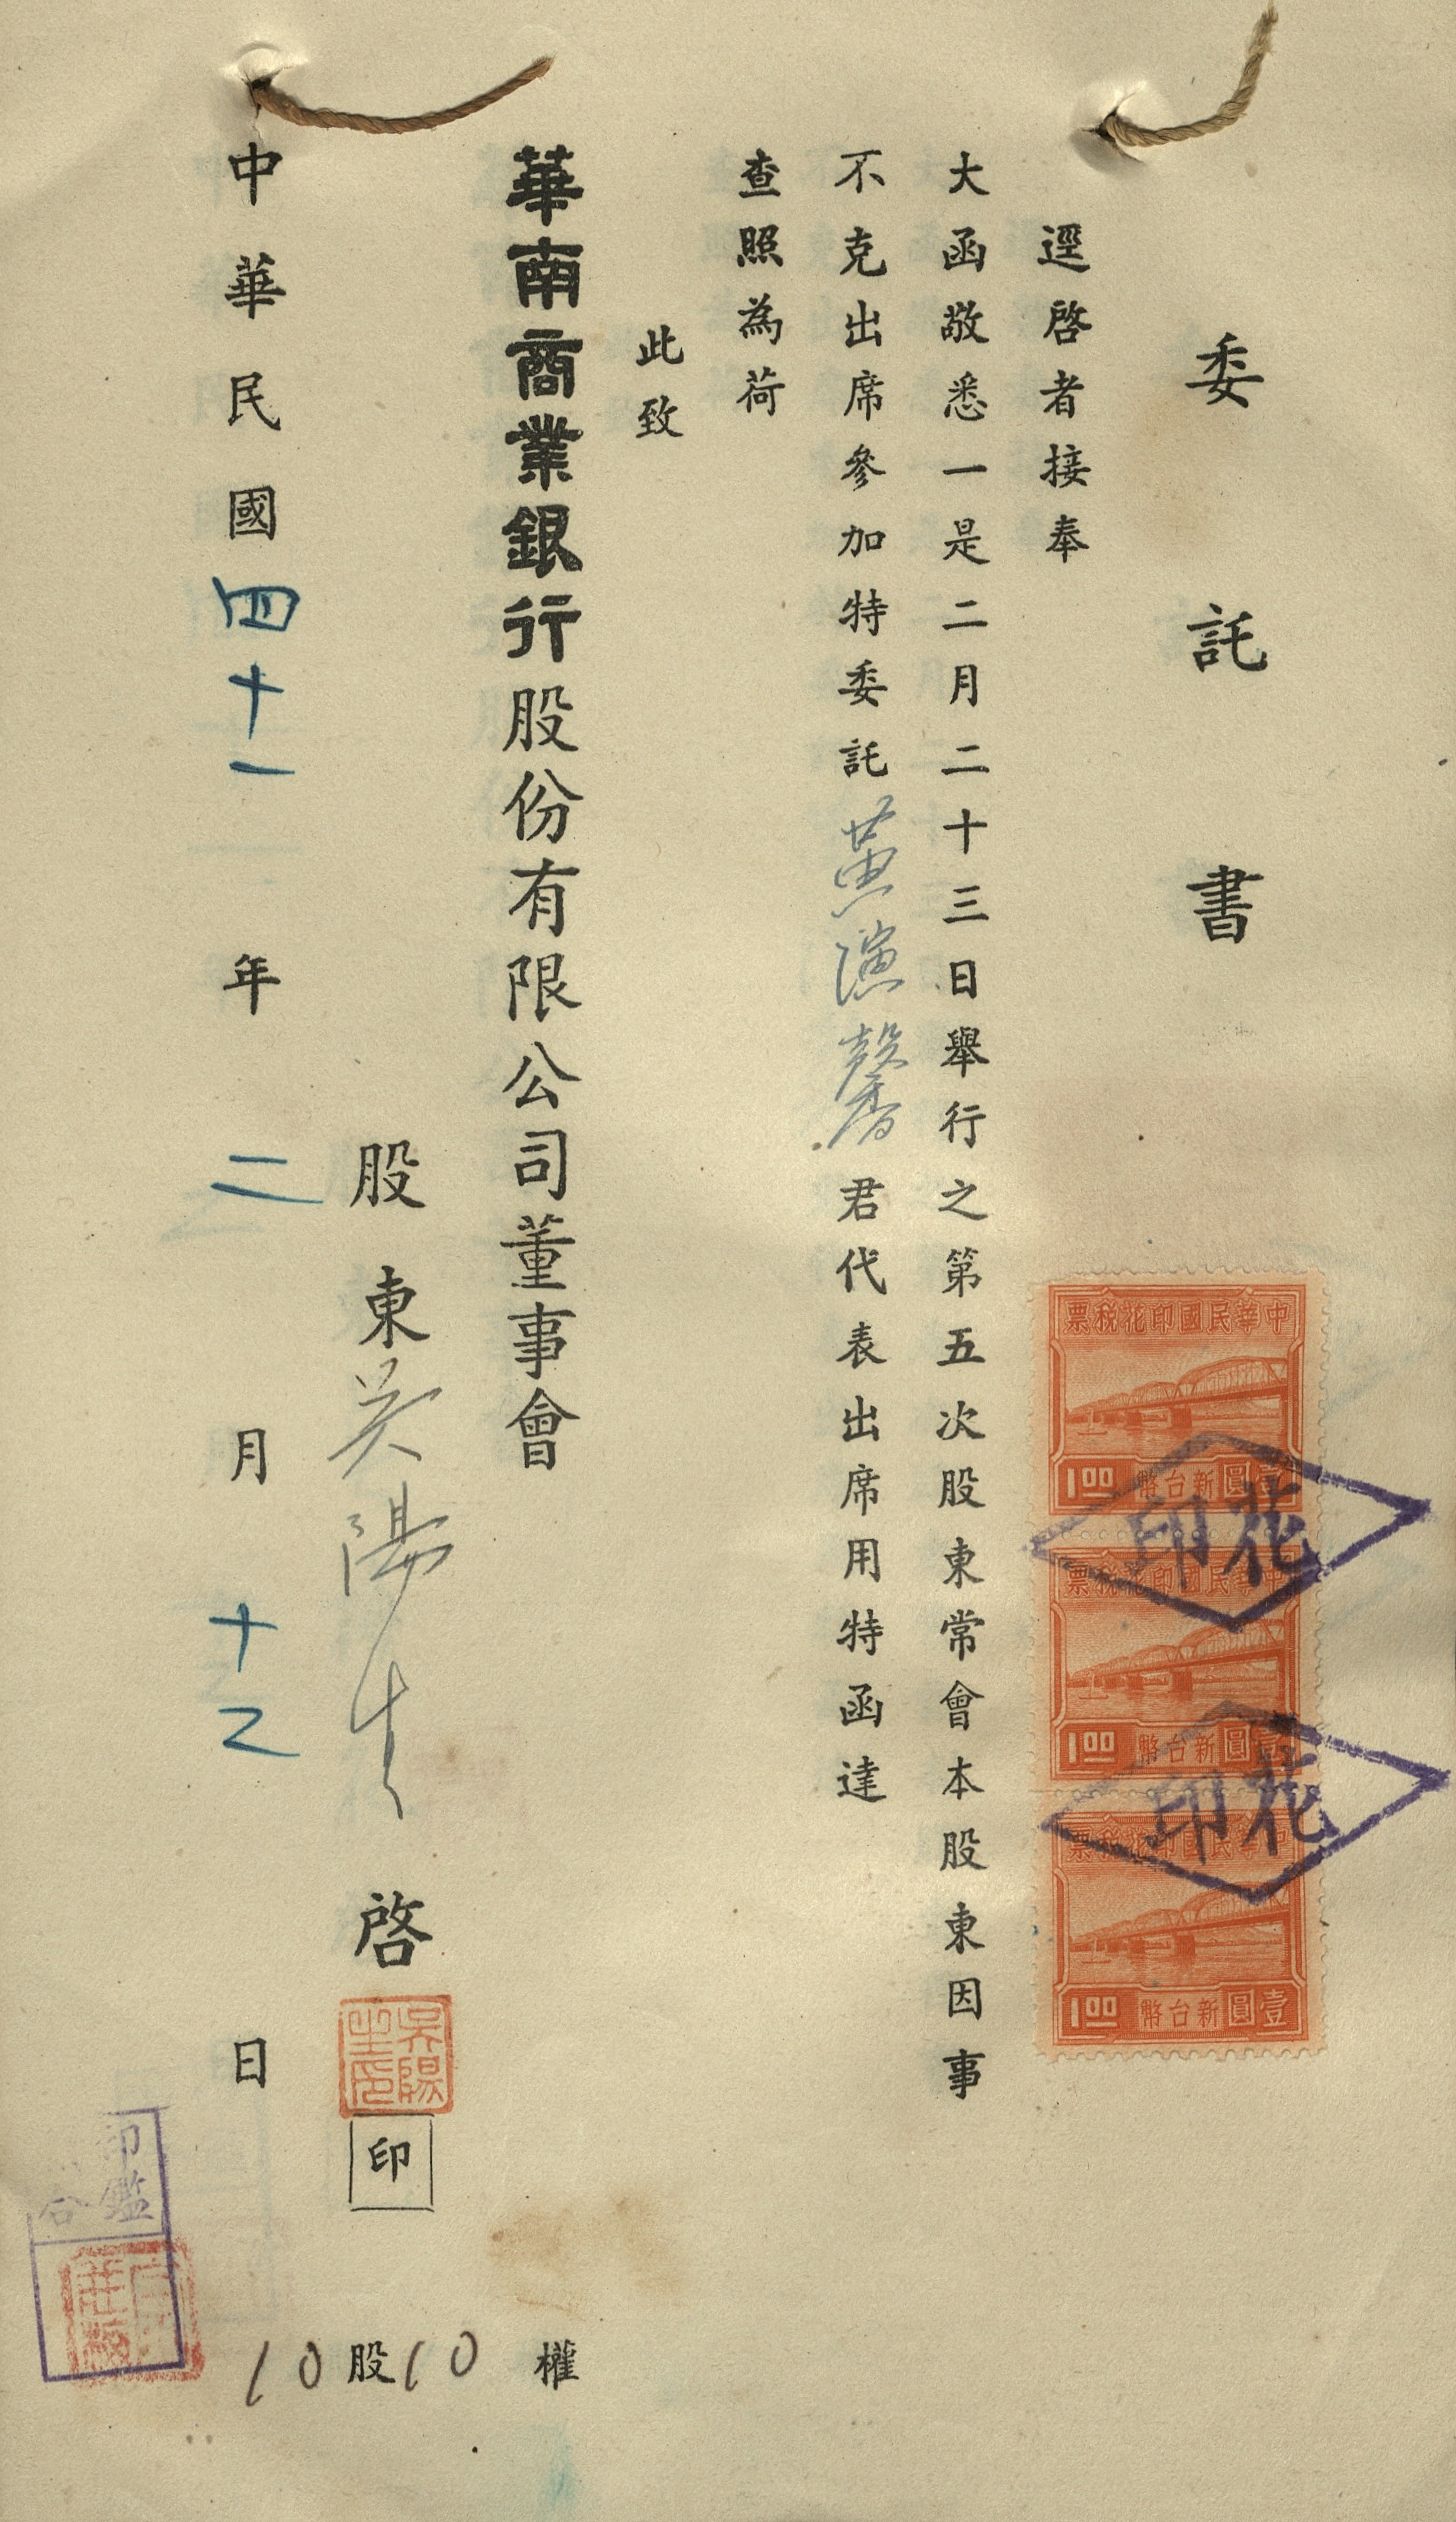 委託書
逕啓者接奉
大函敬悉一是二月二十三日舉行之第五次股東常會本股東因事
不克出席參加特委託黃演馨君代表出席用特函達
查照為荷
此致
華南商業銀行股份有限公司董事會
股東吳陽生啓
吳陽生印
印
中華民國四十一年二月十二日
10股10權
中華民國印花稅票
1.00 新台幣壹圓
中華民國印花稅票
1.00 新台幣壹圓
中華民國印花稅票
1.00 新台幣壹圓
印花
印花
印鑑